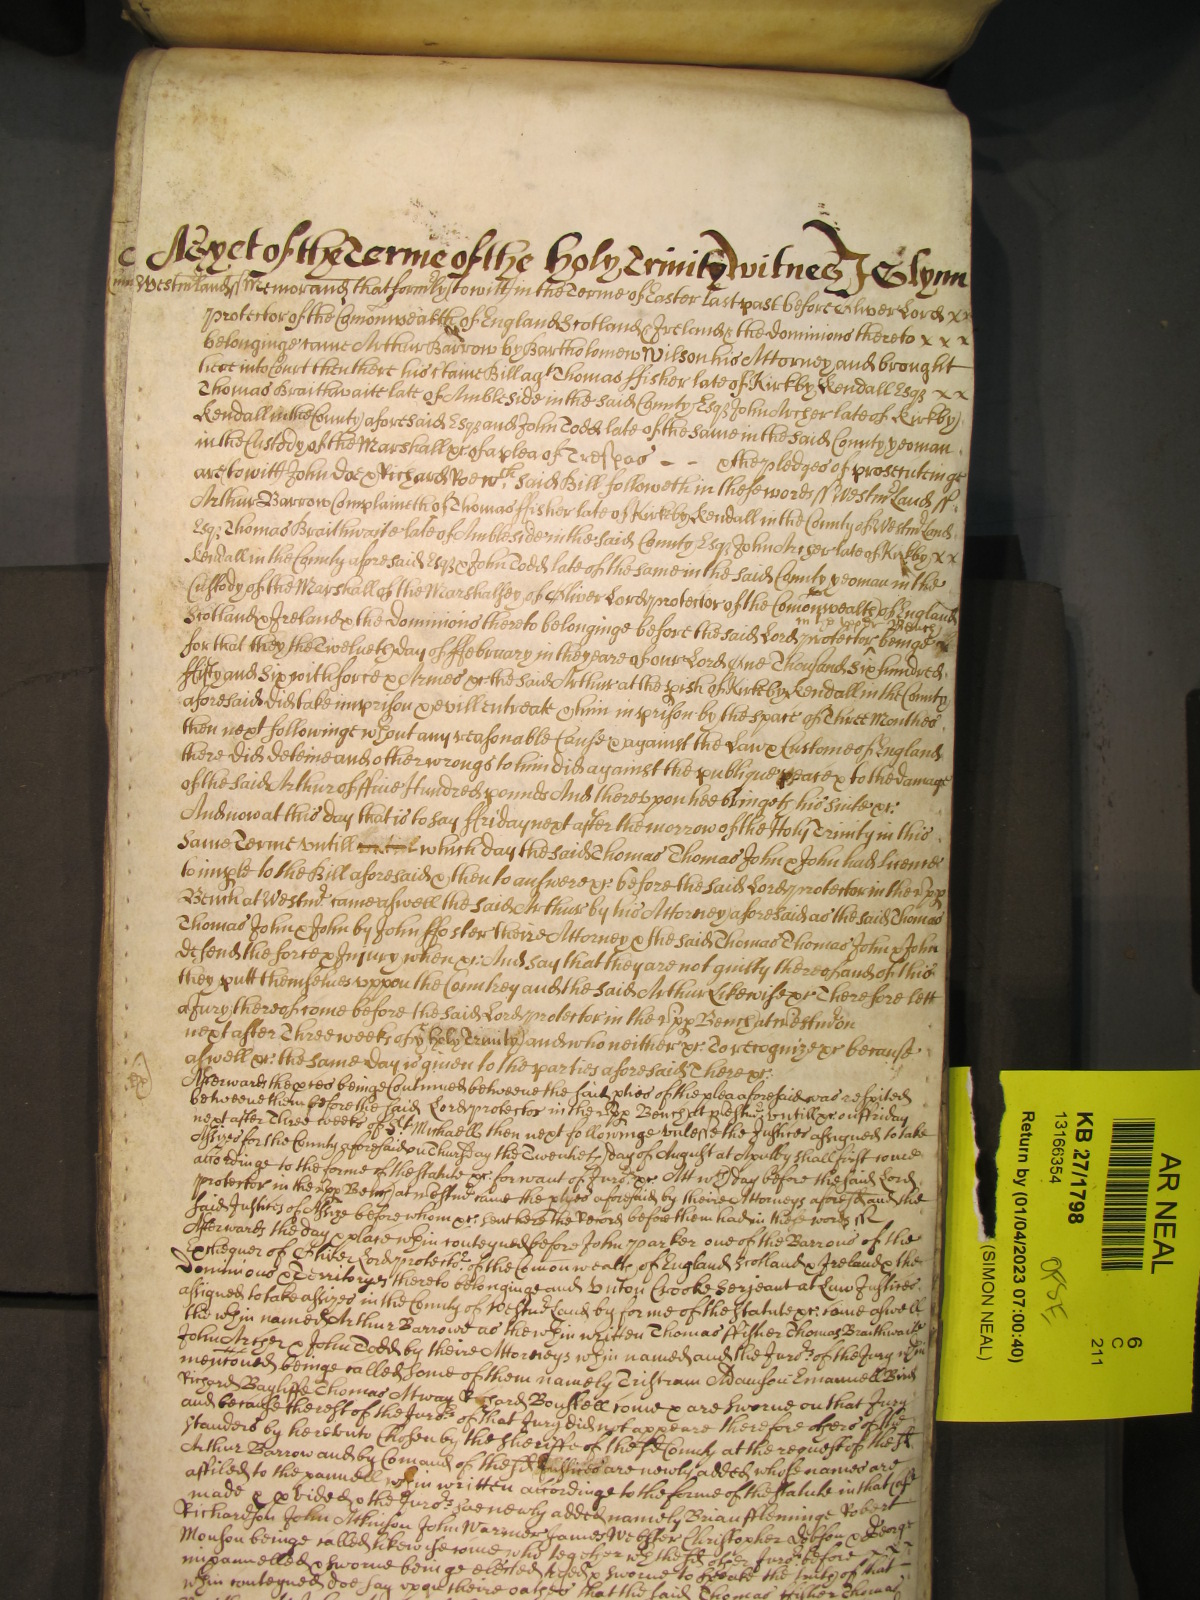 As yet of the Terme of the holy Trinity witnes J Glynn
Westmerland ss Memorand that formerly to witt in the Terme of Easter last past before Oliver Lord x x
protector of the Comonwealth of England Scotland & Ireland & the dominions thereto x x x
belonginge came Arthur Barrow by Bartholomew Wilson his Attorney and brought
here into Court then there his certaine Bill agt Thomas ffisher late of Kirkby Kendall Esqr x x
Thomas Braithwaite late of Ambleside in the said County Esqr John Archer late of Kirkby
Kendall in the County aforesaid Esqr and John Todd late of the same in the said County yeoman
in the Custody of the Marshall &c of a plea of Trespas - - & the pledges of prosecuteinge
are to witt John doe & Richard Roe wch said Bill followeth in these words ss Westmerland ss
Arthur Barrow Complaineth of Thomas ffisher late of Kirkby Kendall in the County of Westmerland
Esqr Thomas Braithwaite late of Ambleside in the said County Esqr John Archer late of Kirkby x x
Kendall in the County aforesaid Esqr & John Todd late of the same in the said County yeoman in the
Custody of the Marshall of the Marshalsey of Oliver Lord protector of the Comonwealth of England
Scotland & Ireland & the Dominions thereto belonginge before the said Lord protector in the upper Bench beinge
for that they the Twelueth day of ffebruary in the yeare of our Lord One Thousand Six hundred
ffifty and Six with force & Armes &c the said Arthur at the pish of Kirkby Kendall in the County
aforesaid did take imprison & evill entreate & him in prison by the space of Three Monthes
then next followinge wthout any reasonable Cause & against the Law & Custome of England
there did deteine and other wrongs to him did against the publique peace & to the damage
of the said Arthur of ffive Hundred pounds And thereupon hee bringeth his suite &c
And now at this day that is to say ffriday next after the morrow of the Holy Trinity in this
same Terme vntill which day the said Thomas Thomas John & John had licence
to imple to the Bill aforesaid & then to answere &c before the said Lord protector in the vpp
Bench at Westmr came aswell the said Arthur by his Attorney aforesaid as the said Thomas
Thomas John & John by John ffoster theire Attorney & the said Thomas Thomas John & John
defend the force & Injury when &c And say that they are not guilty thereof and of this
they putt themselues vppon the Countrey and the said Arthur Likewise &c Therefore lett
a Jury thereof come before the said Lord protector in the vpp Bench at Westm on
next after Three weeks of ye holy Trinity and who neither &c To recognize &c because
aswell &c the same day is given to the parties aforesaid There &c
Afterwards the pces beinge Continued betweene the said pties of the plea aforesaid was respited
betweene them before the said Lord protector in the vpp Bench at Westmr vntill &c on ffriday
next after Three weeks of St Michaell then next followinge vnlesse the Justices assigned to take
Assizes for the County aforesaid on Thursday the Twentieth day of August at Apulby shall first come
accordinge to the forme of the statute &c for want of Juro &c Att wch day before the said Lord
protector in the vpp Bench at Westmr came the pties aforesaid by theire Attorneys aforesd and the
said Justices of Assize before whom &c sent here the Record before them had in these words ss
Afterwards the day & place wthin conteyned before John Parker one of the Barons of the
Exchequer of Oliver Lord protector of the Comonwealth of England Scotland & Ireland & the
Dominions & Territoryes thereto belonginge and Vnton Crooke Serjeant at Law Justices
assigned to take assizes in the County of Westmerland by forme of the statute &c came aswell
the wthin named Arthur Barrowe as the wthin written Thomas ffisher Thomas Braithwaite
John Archer & John Todd by theire Attorneys wthin named and the Juro of the Jury wthin
mentioned beinge called some of them namely Tristram Adamson Emanuell Bird
Richard Bayliffe Thomas Atway Richard Boustell come & are sworne on that Jury
and because the rest of the Juro of that Jury did not appeare therefore others of the
standers by herevnto Chosen by the Sheriffe of the sd County at the request of the sd
Arthur Barrow and by Comand of the sd Justices are newly added whose names are
affiled to the pannell wthin written accordinge to the forme of the statute in that case
made & pvided & the Juro soe newly added namely Brian fflemminge Robert
Richardson John Atkinson John Warriner James Webster Christopher & George
Monson beinge called likewise come who together wth the sd other Juro before x x x
impannelled & sworne beinge elected tryed & sworne to speake the truth of that
wthin conteyned doe say vpon theire oathes that the said Thomas ffisher Thomas
AR NEAL
6
C
211
KB 27/1798
13166354
Return by (01/04/2023 07:00:40)
(SIMON NEAL)